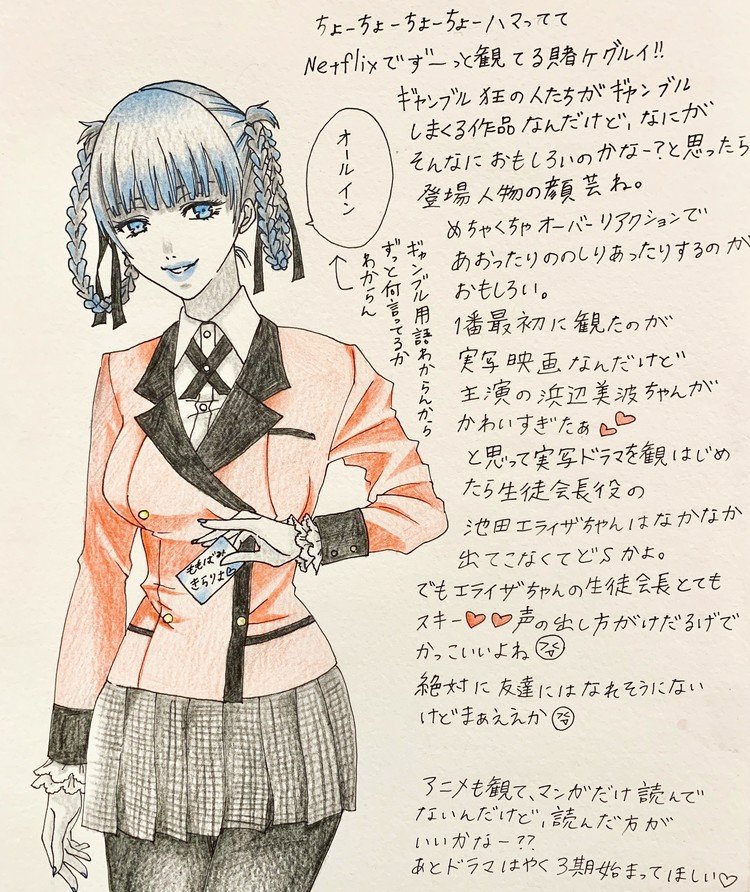 ちょーちょーちょーちょーハマってて
Netflixでずーっと観てる賭ケグルイ!!
ギャンブル狂の人たちがギャンブル
しまくる作品なんだけど、なにが
そんなにおもしろいのかなー?と思ったら
登場人物の顔芸ね。
めちゃくちゃオーバーリアクションで
あおったりののしりあったりするのが
おもしろい。
1番最初に観たのが
実写映画なんだけど
主演の浜辺美波ちゃんが
かわいすぎたぁ♥♥
と思って実写ドラマを観はじめ
たら生徒会長役の
池田エライザちゃんはなかなか
出てこなくてどSかよ。
でもエライザちゃんの生徒会長とても
スキー♥♥声の出し方がけだるげで
かっこいいよね
絶対に友達にはなれそうにない
けどまぁええか
アニメも観て、マンガだけ読んで
ないんだけど、読んだ方が
いいかなー??
あとドラマはやく3期始まってほしい♡
オールイン
ギャンブル用語わからんから
ずっと何言ってるか
わからん
ももばみ
きらりさま